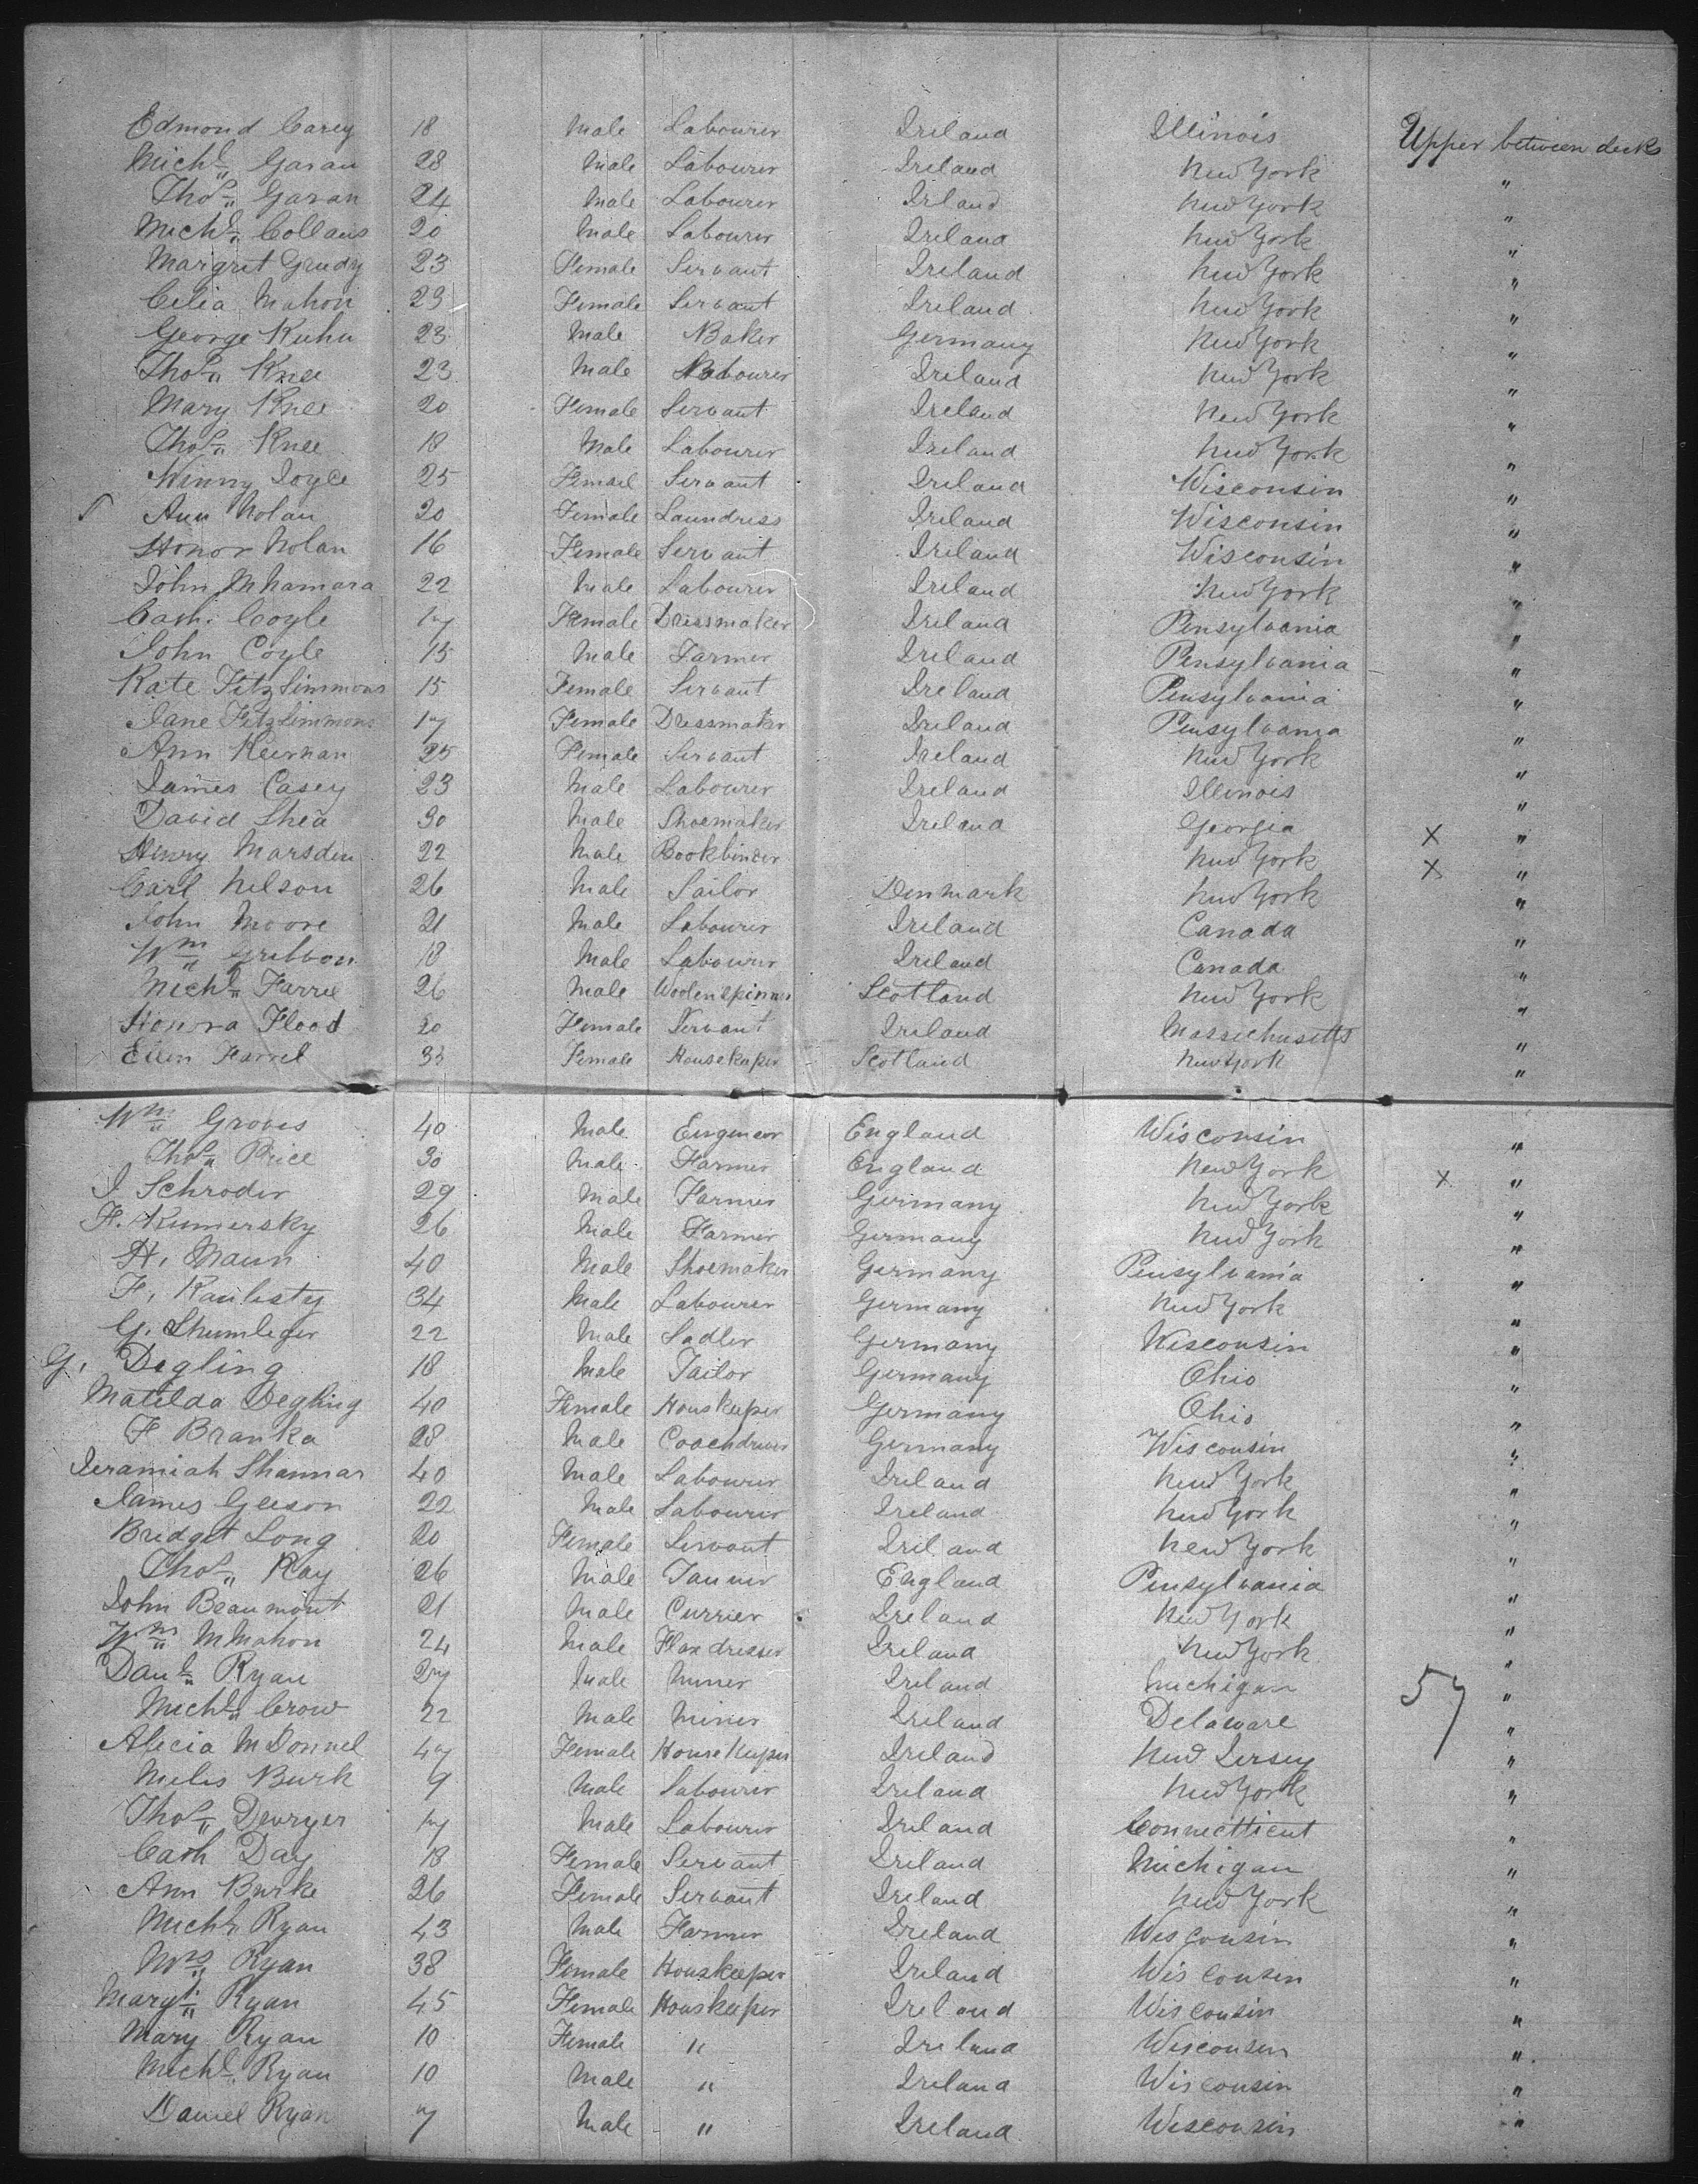 Edmond Carey 18 Male Labourer Ireland Illinois Upper between decks
Michl Garan 28 Male Labourer Ireland New York "
Thos Garan 24 Male Labourer Irland New York "
Michl Collans 20 Male Labourer Ireland New York "
Margret Grudy 23 Female Servant Ireland New York "
Celia Mahon 23 Female Servant Ireland New York "
George Kuhn 23 Male Baker Germany New York "
Thos Knee 23 Male Labourer Ireland New York "
Mary Knee 20 Female Servant Ireland New York "
Thos Knee 18 Male Labourer Ireland New York "
Winny Joyce 25 Female Servant Ireland Wisconsin "
Ann Nolan 20 Female Laundriss Ireland Wisconsin "
Honor Nolan 16 Female Servant Ireland Wisconsin "
John McNamara 22 Male Labourer Ireland New York "
Cath. Coyle 17 Female Dressmaker Ireland Pensylvania "
John Coyle 15 Male Farmer Ireland Pensylvania "
Kate FitzSimmons 15 Female Servant Ireland Pensylvania "
Jane FitzSimmons 17 Female Dressmaker Ireland Pensylvania "
Ann Keernan 25 Female Servant Ireland New York "
James Casey 23 Male Labourer Ireland Illinois "
David Shea 30 Male Shoemaker Ireland Georgia X "
Henry Marsden 22 Male Bookbinder New York X "
Carl Nelson 26 Male Sailor Denmark New York "
John Moore 21 Male Labourer Ireland Canada "
Wm Gribbon 18 Male Labourer Ireland Canada "
Michl Farrel 26 Male Wodenspinner Scotland New York "
Honora Flood 20 Female Servant Ireland Massechusetts "
Ellen Farrel 33 Female Housekeeper Scotland New York "
Wm Groves 40 Male Engineer England Wisconsin "
Thos Price 30 Male Farmer England New York X "
J Schroder 29 Male Farmer Germany New York "
F. Kumersky 26 Male Farmer Germany New York "
H. Maun 40 Male Shoemaker Germany Pensylvania "
F. 34 Male Labourer Germany New York "
G. Shumleger 22 Male Sadler Germany Wisconsin "
G. Degling 18 Male Tailor Germany Ohio "
Matilda Degling 40 Female Houskeeper Germany Ohio "
F Branka 28 Male Coachdriver Germany Wisconsin "
Jeramiah Shannar 40 Male Labourer Ireland New York "
James Gleeson 22 Male Labourer Ireland New York "
Bridget Long 20 Female Servant Ireland New York "
Thos Ray 26 Male Tanner England Pensylvania "
John Beaumont 21 Male Currier Ireland New York "
Wm McMahon 24 Male Flax dresser Ireland New York "
Danl Ryan 27 Male Miner Ireland Michigan 57 "
Michl Crow 22 Male Miner Ireland Delaware "
Alicia McDonnel 47 Female House Keeper Ireland New Jersey "
Miles Burk 9 Male Labourer Ireland New York "
Thos Dewryer 17 Male Labourer Ireland Connetticut "
Cath Day 18 Female Servant Ireland Michigan "
Ann Burke 26 Female Servant Ireland New York "
Michl Ryan 43 Male Farmer Ireland Wisconsin "
Mrs Ryan 38 Female Houskeeper Ireland Wisconsin "
Margt Ryan 45 Female Houskeeper Ireland Wisconsin "
Mary Ryan 10 Female " Ireland Wisconsin "
Michl Ryan 10 Male " Ireland Wisconsin "
Daniel Ryan 7 Male " Ireland Wisconsin "